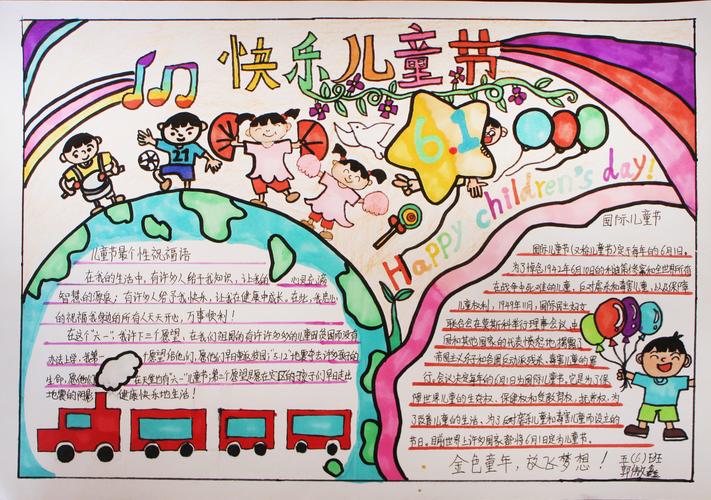 快乐儿童节
6.1
Happy children's day!
21
儿童节最个性祝福语
在我的生活中，有许多人给予我知识，让我的 心灵充满
智慧的源泉；有许多人给予我快乐，让我在健康中成长，在此，我衷心
的祝福我身边的所有人天天开心，万事快利！
在这个"六一"，我许下二个愿望，在我们祖国的有许许多多的儿童因贫困而没有
办法上学，我第一 个愿望给他们，愿他们早日重返校园；"5.12"地震夺去许多孩子的
生命，愿他们 在天堂也有"六一"儿童节；第二个愿望是愿在灾区的孩子们早日走出
地震的阴影 健康快乐地生活！
国际儿童节
国际儿童节(又称儿童节)定于每年的6月1日。
为了悼念1942年6月10日的利迪策惨案和全世界所有
在战争中死难的儿童，反对虐杀和毒害儿童，以及保障
儿童权利，1949年11月，国际民主妇女
联合会在莫斯科举行理事会议，中
国和其他国家的代表愤怒地揭露了
帝国主义分子和各国反动派残杀、毒害儿童的罪
行。会议决定每年的6月1日为国际儿童节。它是为了保
障世界儿童的生存权、保健权和受教育权、抚养权，为
了改善儿童的生活，为了反对虐杀儿童和毒害儿童而设立的
节日。目前世界上许多国家都将6月1日定为儿童节。
金色童年，放飞梦想！
五(6)班